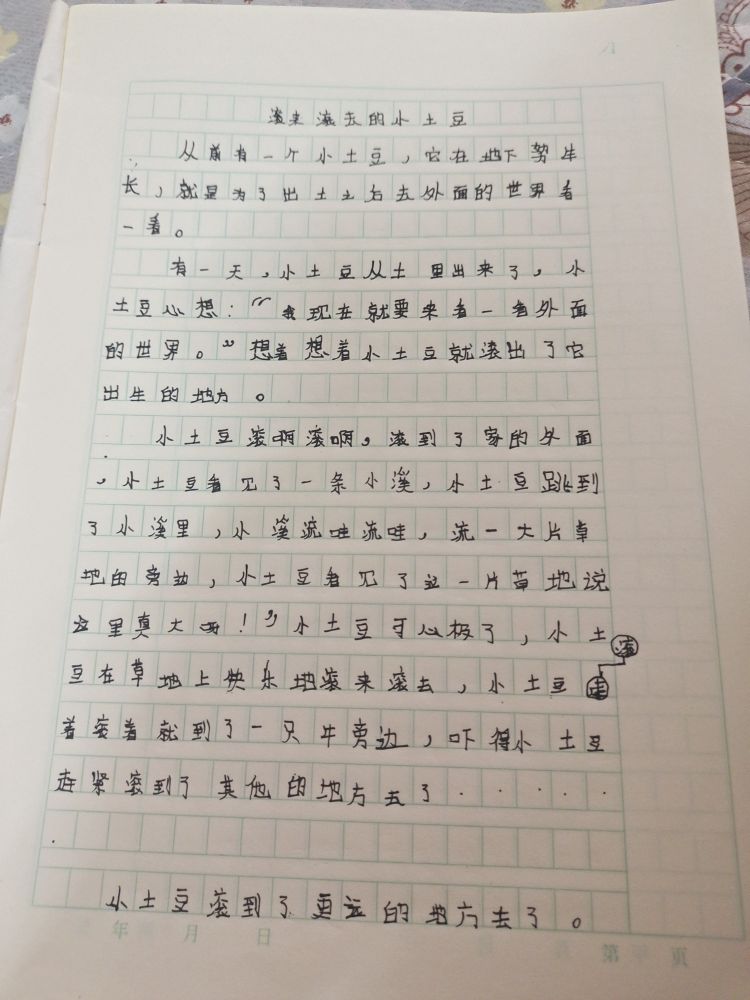 滚来滚去的小土豆
从前有一个小土豆，它在地下努牛
长，就是为了出土之后去外面的世界看
一看。
有一天，小土豆从土里出来了，小
土豆心想：“我现在就要来看一看外面
的世界。”想着想着小土豆就滚出了它
出生的地方。
小土豆滚啊滚啊，滚到了家的外面
，小土豆看见了一条小溪，小土豆跳到
了小溪里，小溪流哇流哇，流一大片草
地的旁边，小土豆看见了这一片草地说
这里真大啊！”小土豆可心极了，小土
豆在草地上快乐地滚来滚去，小土豆滚
着滚着就到了一只牛旁边，吓得小土豆
赶紧滚到了其他的地方去了·····
·
小土豆滚到了更远的地方去了。
年 月 日
第 页